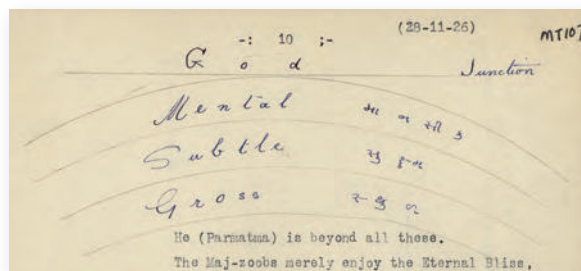 (28-11-26)
-: 10 ;-
MT107
G o d
Junction
Mental મા ન સી ક
Subtle સુ ક્ષ્મ
Gross સ્થુ ળ
He (Parmatma) is beyond all these.
The Maj-zoobs merely enjoy the Eternal Bliss,